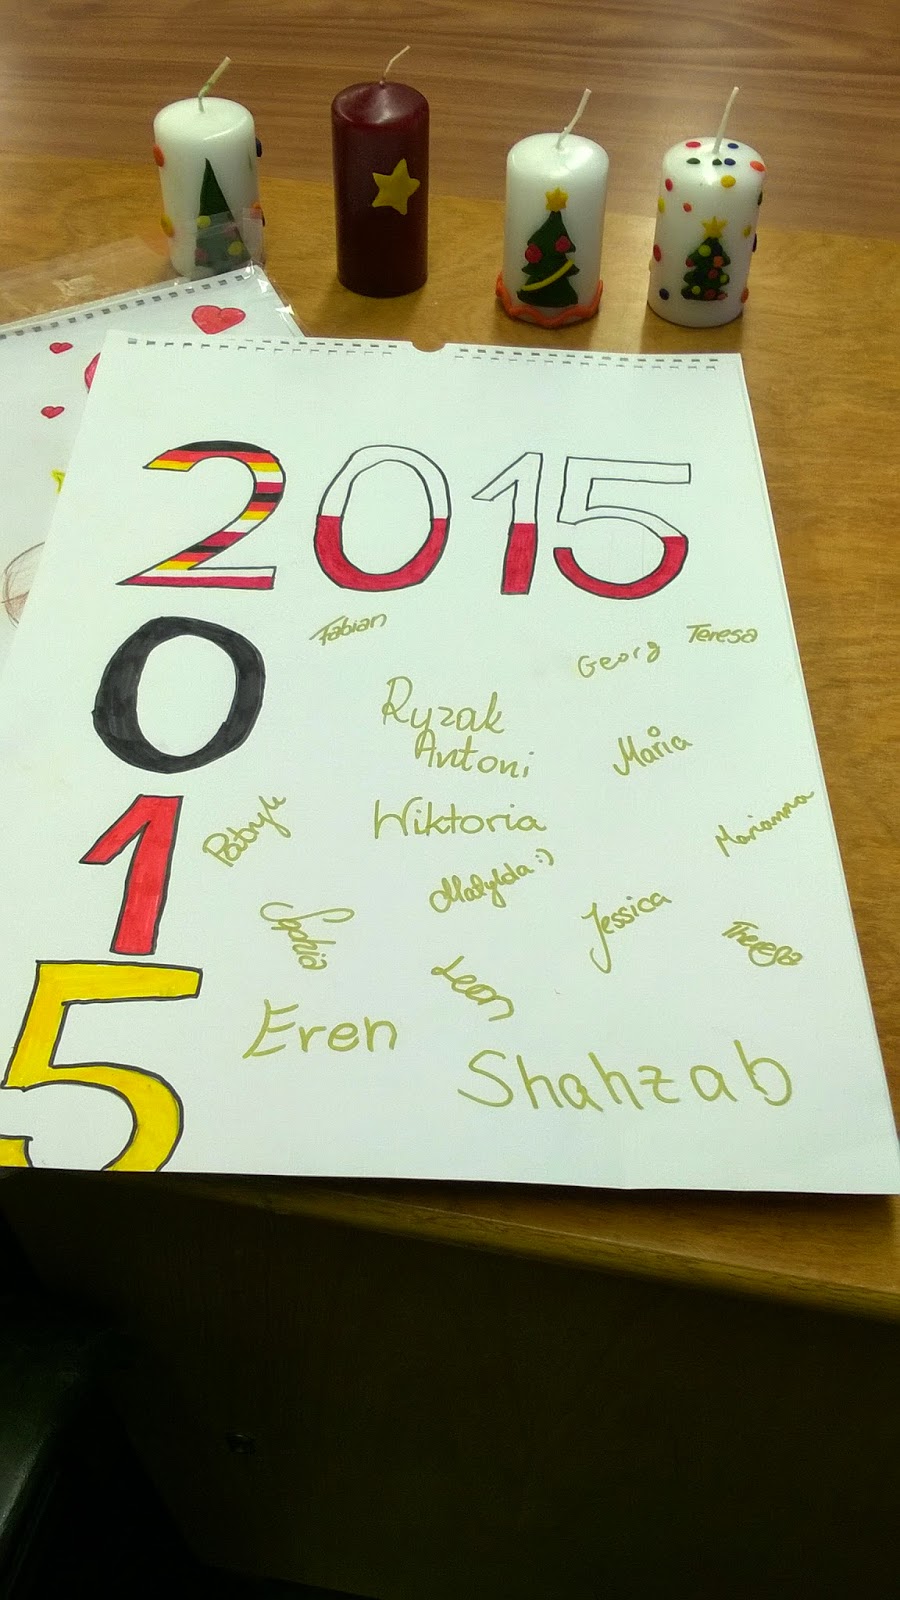 2015
0
1
5
Fabian
Georg Teresa
Ryzak
Antoni
Maria
Wiktoria
Patryk
Marianna
Matylda :)
Jessica
Sophia
Theresa
Leon
Eren
Shahzab